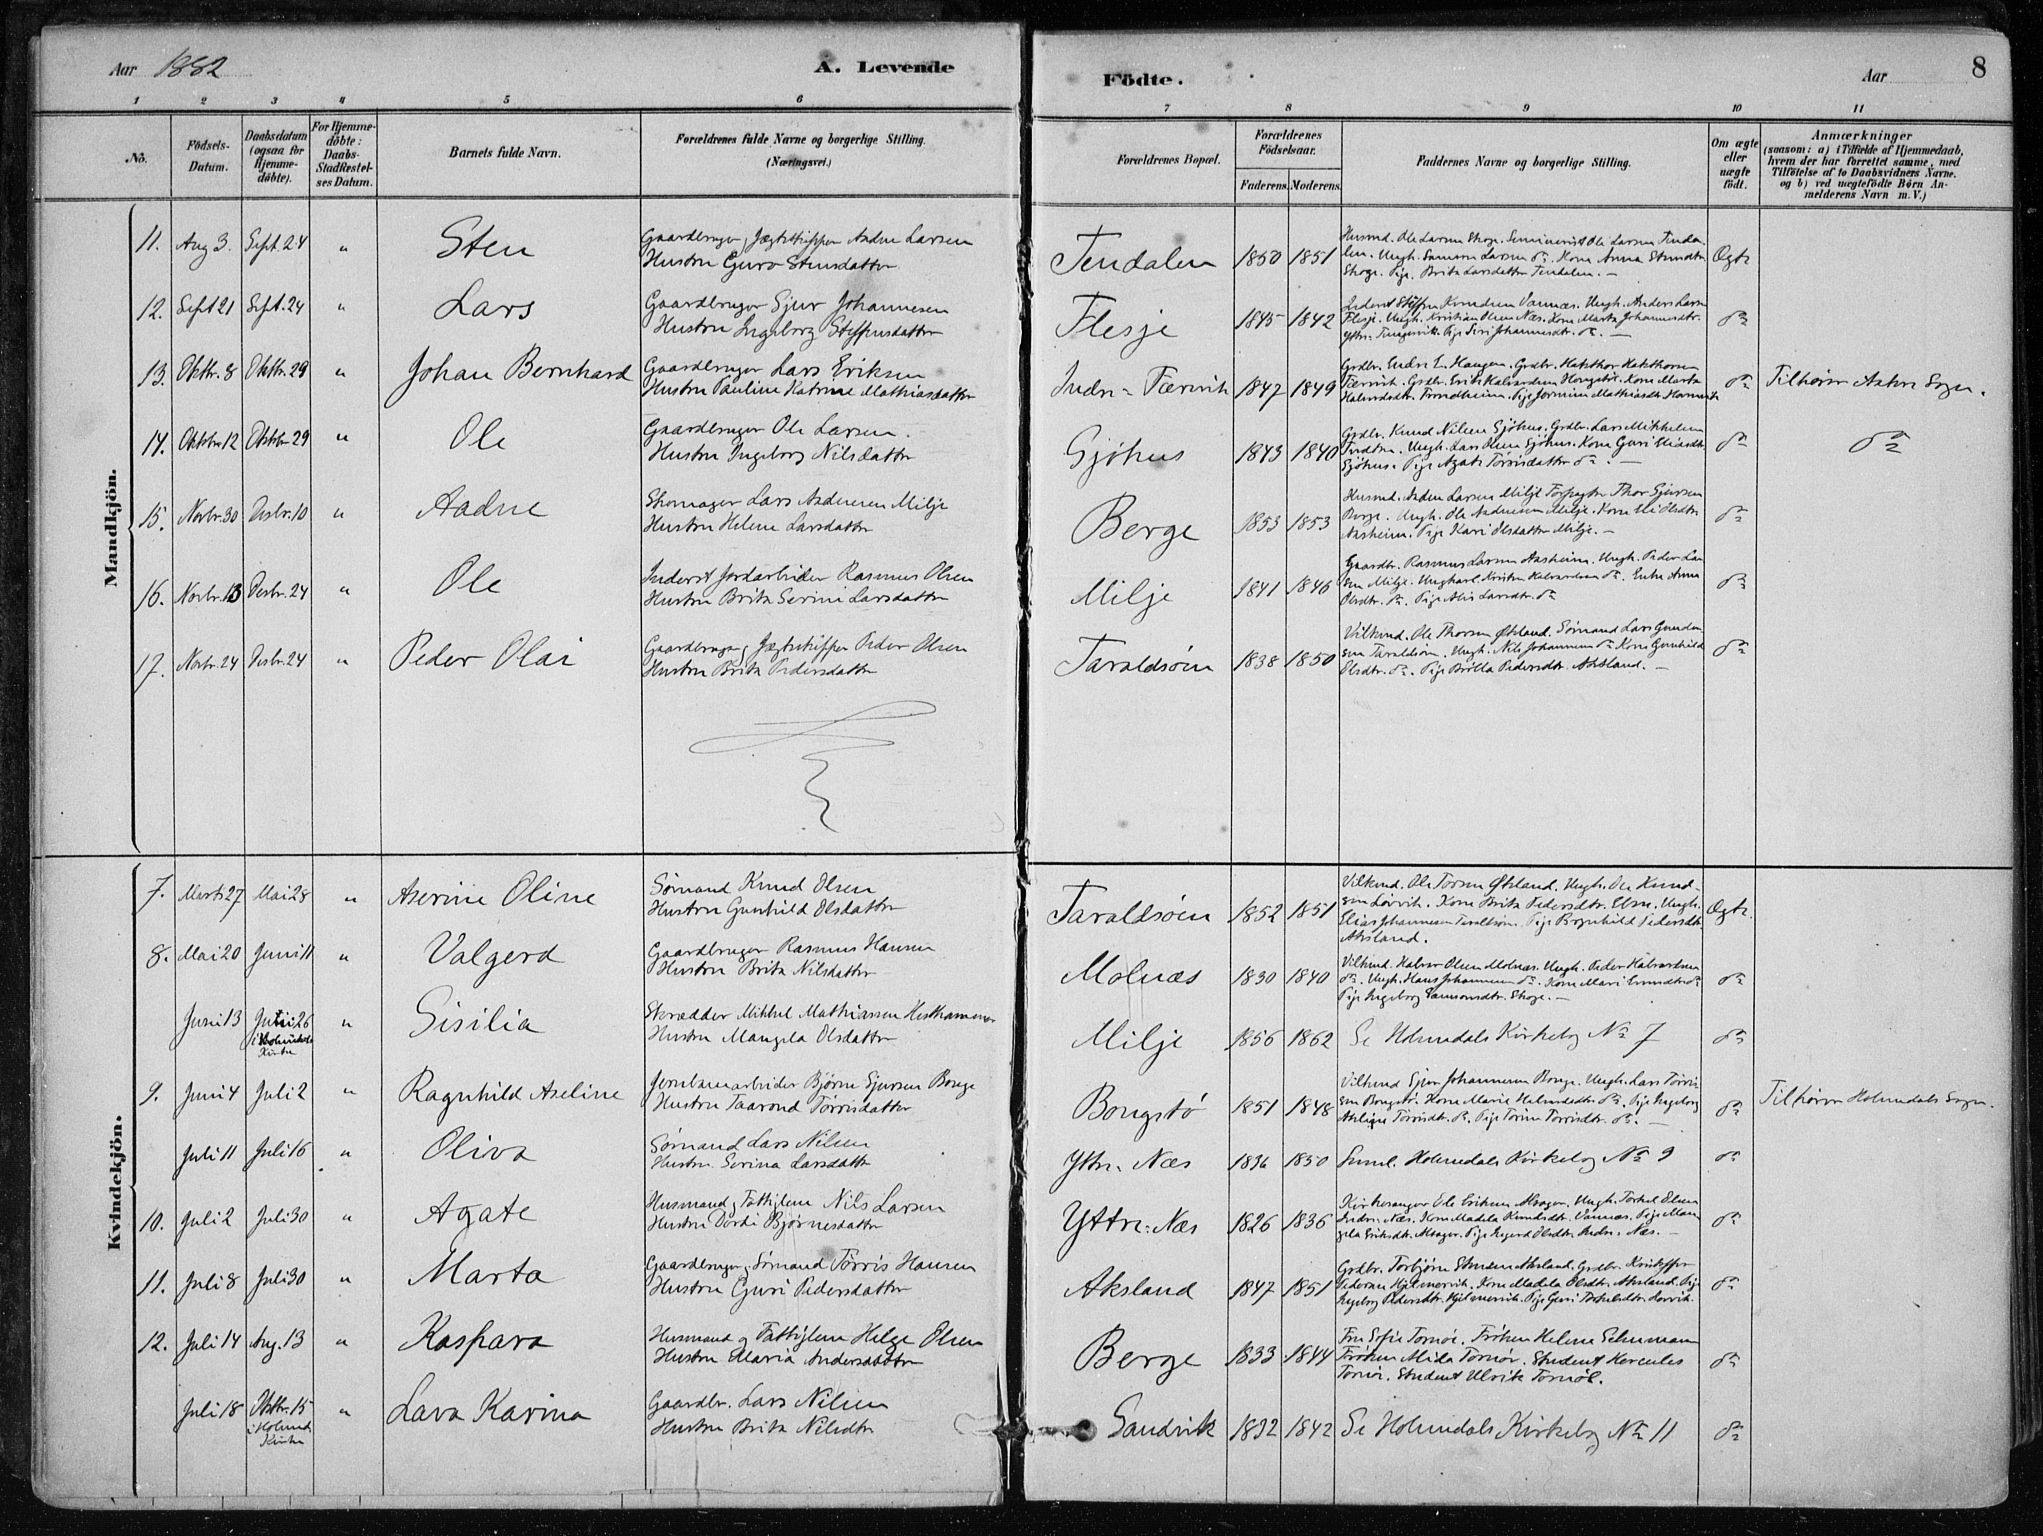 Aar 1882
A. Levende
Födte.
Aar
8
1 2 3 4 5 6 7 8 9 10 11
No.
Födsels-Datum.
Daabsdatum (ogsaa for Hjemme-döbte).
For Hjemme-döbte: Daabs-Stadfestel-ses Datum.
Barnets fulde Navn.
Forældrenes fulde Navne og borgerlige Stilling. (Næringsvei.)
Forældrenes Bopæl.
Forældrenes Födselsaar.
Faderens. Moderens.
Faddernes Navne og borgerlige Stilling.
Om ægte eller uægte födt.
Anmærkninger (saasom: a) i Tilfælde af Hjemmedaab, hvem der har forrettet samme, med Tilföielse af to Daabsvidners Navne. og b) ved uægtefödte Börn An-melderens Navn m. V.)
Mandkjön.
11. Aug 3. Sept. 24 " Sten Gaardbruger, Jægtskipper Andre Larsen
Hustru Guro Stensdatter
Tendalen 1850 1851
Husmd. Ole Larsen Skoge. Seminarist Ole Larsen Tenda-
len. Ungk. Samson Larsen do. Kone Anna
Skoge. Pige Brita Larsdatter Tendalen. —
Ægte
12. Sept 21 Sept. 24 " Lars Gaardbruger Sjur Johannesen
Hustru Ingeborg Steffensdatter
Flesje 1845 1842
Knudsen Vannæs. Ungk. Anders Larsen
Flesje. Ungk. Kristian Olsen Næs. Kone Marta Johannesdtr.
Pige Siri Johannesdtr. do. —
do
13. Oktbr. 8 Oktbr. 29 " Johan Bernhard Gaardbruger Lars Eriksen
Hustru Pauline Katrine Mathiasdatter
Indre Færøvik 1847 1849
Grdbr. Endre L. Haugen. Grdbr. Hakthor Hakthorsen
Færøvik. Grdbr. Erik Halvardsen
Trondheim. Pige Mathiasdtr.
do Tilhører Askvo Sogn.
14. Oktbr. 12 Oktbr. 29 " Ole Gaardbruger Ole Larsen.
Hustru Ingeborg Nilsdatter
Gjøhus 1843 1840
Grdbr. Knud Nilsen Gjøhus. Grdbr. Lars Mikkelsen
Ungk. Lars Olsen Gjøhus. Kone Guri
Gjøhus. Pige Agate Torrisdatter do. —
do do
15. Novbr. 30 Desbr. 10 " Aadne Skomager Lars Aadnesen Milje
Hustru Helene Larsdatter
Berge 1853 1853
Husmd. Anders Larsen Milje Thor Sjursen
Berge. Ungk. Ole Aadnesen Milje. Kone
Aasheim. Pige Kari Olsdatter Milje. —
do
16. Novbr. 13 Desbr. 24 " Ole Inderst Jordarbeider Rasmus Olsen
Hustru Brita Serine Larsdatter
Milje 1841 1846
Gaardbr. Rasmus Larsen Aasheim. Ungk. Peder Lar-
sen Milje. Ungkarl Kristen Halvardsen do. Enke Anna
Olsdtr. do. Pige Larsdtr. do
do
17. Novbr. 24 Desbr. 24 " Peder Olai Gaardbruger, Jægtskipper Peder Olsen
Hustru Brita Pedersdatter
Taraldsøen 1838 1850
Vilkmd. Ole Thorsen Østland. Sømand Lars
sen Taraldsøen. Ungk. Nils Johannesen do Kone Gunhild
Olsdtr. do. Pige Brilla Pedersdtr. Aksland. —
do
Kvindekjön.
7. Marts 27 Mai 28 " Aserine Oline Sømand Knud Olsen
Hustru Gunhild Olsdatter
Taraldsøen 1852 1851
Vilkmd. Ole Torsen Østland. Ungk. Ole Knud-
sen Løvvik. Kone Brita Pedersdtr. Ungk.
Elias Johannesen Taraldsøen. Pige Brynhild Pedersdtr.
Aksland.
Ægte.
8. Mai 20 Juni 11 " Valgerd Gaardbruger Rasmus Hansen
Hustru Brita Nilsdatter
Molnæs 1830 1840
Vilkmd. Halvor Olsen Molnæs. Ungk. Peder Halvardsen
do. Ungk. Hans Johannesen do. Kone Mari do
Pige Ingeborg Samsonsdtr. Skoge. —
do
Juni 13 Juli 26 i Holmedals Kirke " Sisilia Skrædder Mikkel Mathiassen Hesthammer
Hustru Mangela Olsdatter
Milje 1856 1862 Se Holmedals Kirkebog No 7 do
9. Juni 4 Juli 2 " Ragnhild Aseline Jernbanearbeider Bjørne Sjursen Bonge
Hustru Taarond Torrisdatter
Bongstø 1851 1848
Vilkmd Sjur Johannesen Bonge. Ungk. Lars Torris-
sen Bongstø. Kone Marie do. Pige Ingeborg
Torrisdtr. do. Pige Torine Torrisdtr. do. —
do Tilhører Holmedals Sogn.
Juli 11 Juli 16 " Oliva Sømand Lars Nilsen
Hustru Serina Larsdatter
Ytre Næs 1850 Holmedals Kirkebog No 9 do
10. Juli 2 Juli 30 " Agate Husmand, Fattiglem Nils Larsen
Hustru Dordi Bjørnesdatter
Yttre Næs 1826 1836
Kirkesanger Ole Eriksen Alsager. Ungk. Torkel Olsen
Indre Næs. Kone Madela Knudsdtr. Vannæs. Pige Man-
gela Eriksdtr. Alsager. Pige Ingerd Olsdtr. Indre Næs. —
do
11. Juli 8 Juli 30 " Marta Gaardbruger, Sømand Torris Hansen
Hustru Guri Pedersdatter
Aksland 1847 1851
Grdbr. Torbjørn Stensen Aksland. Grdbr. Kristoffer
Pedersen Hjelmervik. Kone Madela Olsdtr. Aksland. Pige
Ingeborg Pedersdtr. Hjelmervik. Pige Guri Løvvik.
do
12. Juli 14 Aug. 13 " Kaspara Husmand og Fattiglem Helge Olsen
Hustru Maria Andersdatter
Berge 1833 1844
Fru Sofie Tornøe. Frøken Helene Schumann
Frøken Mida Tornøe. Student Hercules
Tornøe. Student Ulrik Tornøe.
do
Juli 18 Oktbr. 15 i Holmed. Kirke " Lava Karina Gaardbr. Lars Nilsen
Hustru Brita Nilsdtr
Sandvik 1832 1842 Se Holmedals Kirkebog No 11 do